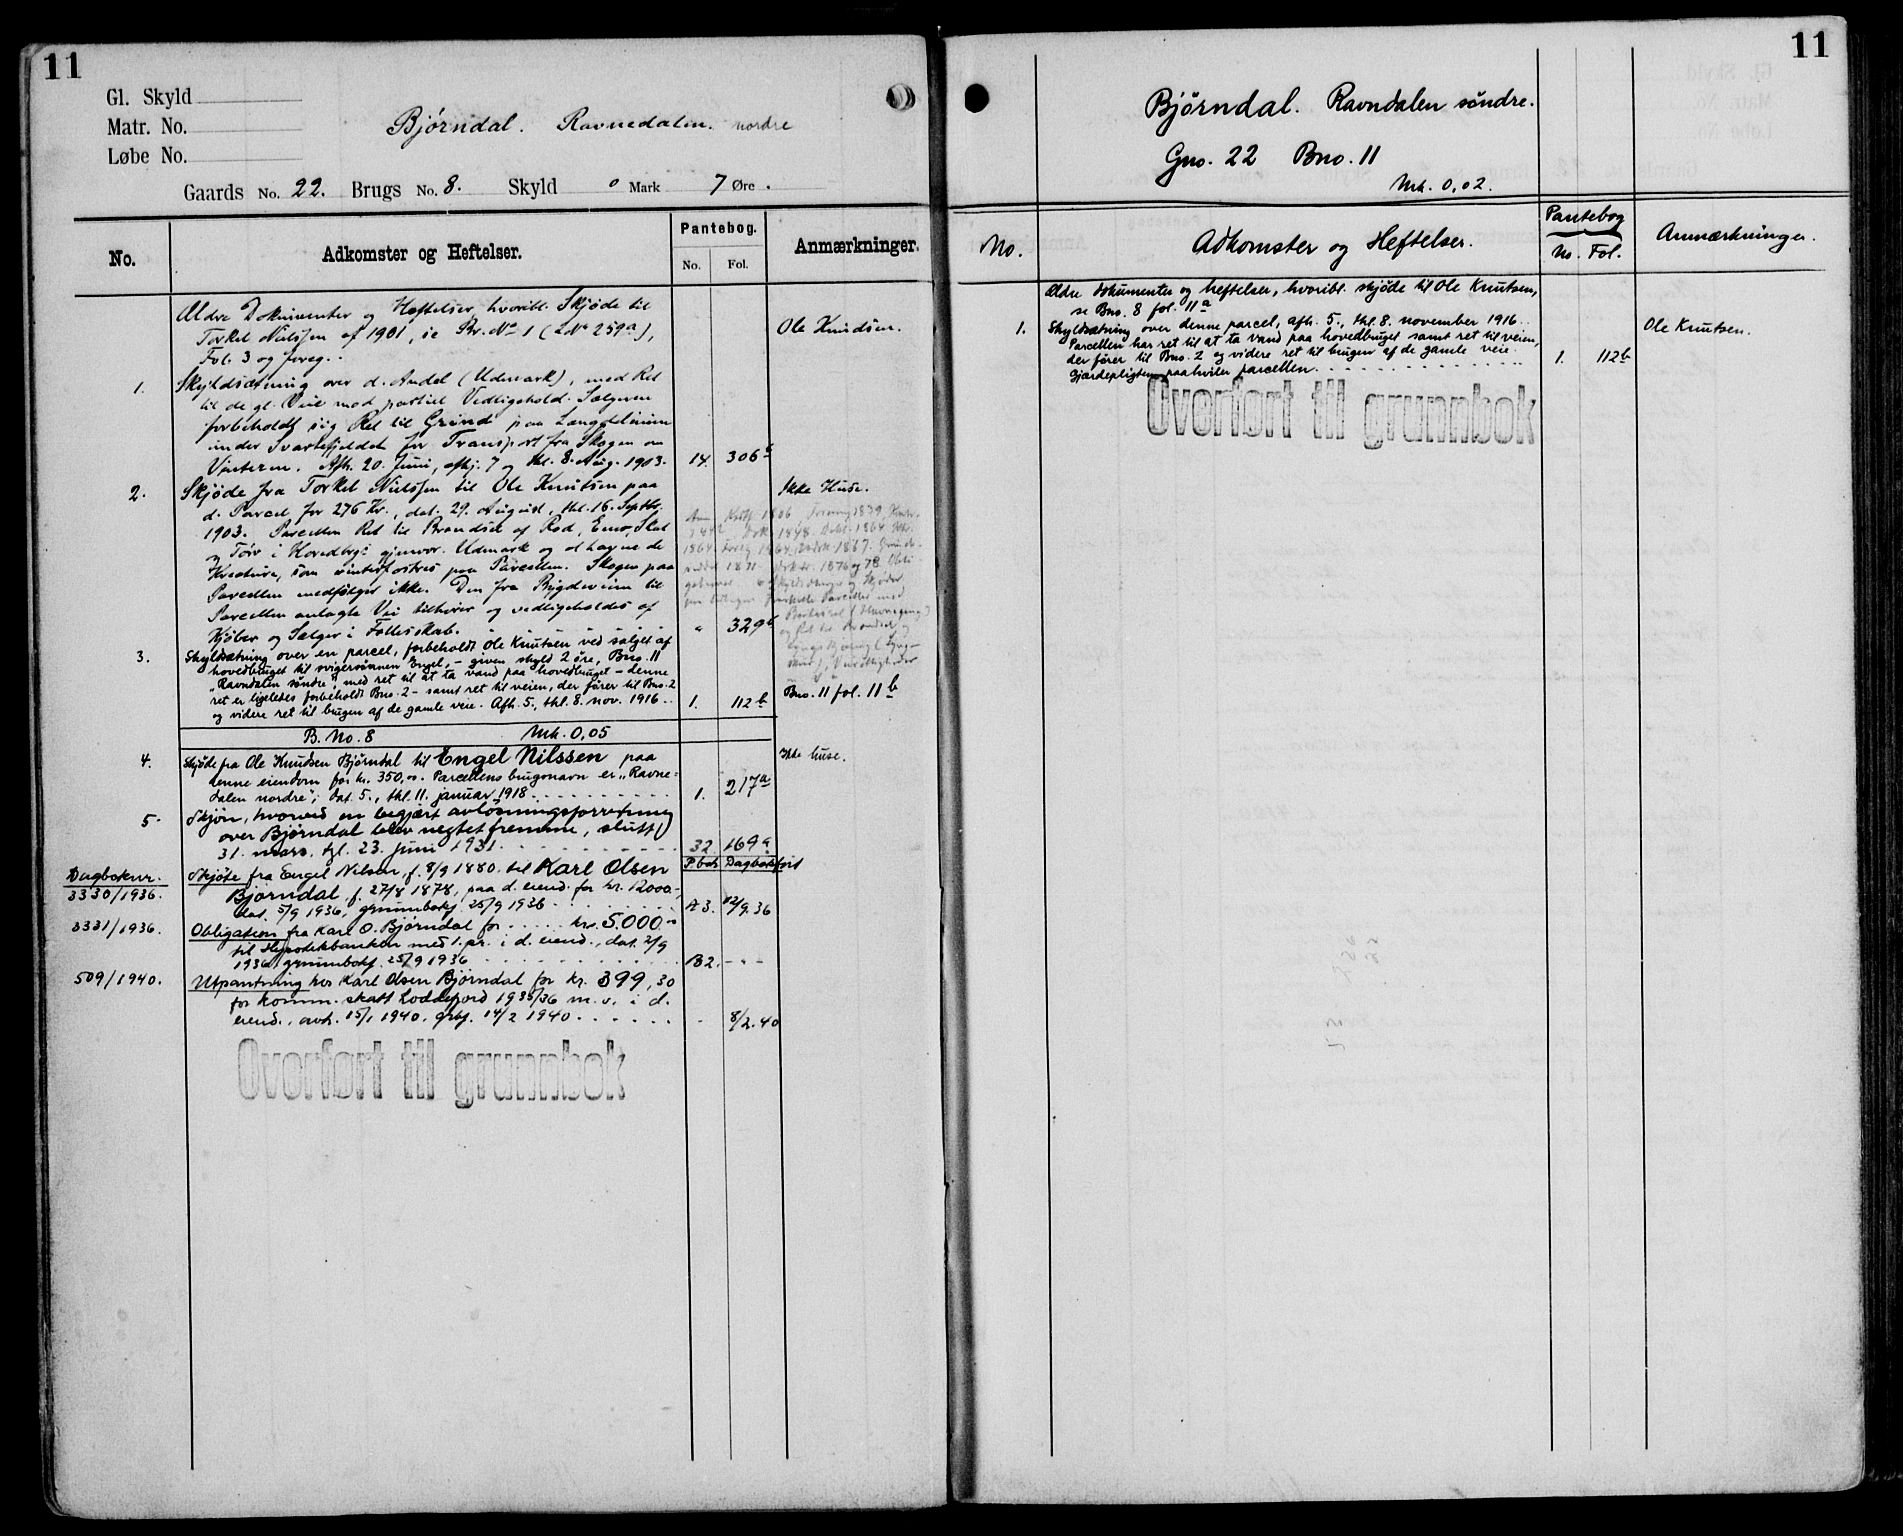 11
Gl. Skyld
Matr. No.
Løbe No.
Bjørndal. Ravnedalen. nordre
Gaards No. 22. Brugs No. 8. Skyld 0 Mark 7 Øre.
No. Adkomster og Heftelser. Pantebog. No. Fol. Anmærkninger.
Ældre Dokumenter og Heftelser, hvoribl. Skjøde til
Torkel Nielssen af 1901, se Br. No 1 (LNr 259a),
Fol. 3 og foreg..
Ole Knudsen.
1. Skyldsætning over d. Andel (Udmark), med Ret
til de gl. Veie mod partiel Vedligehold. Sælgeren
forbeholdt sig Ret til Grind paa Længdelinien
under Svartefjeldet for Transport fra Skogen om
Vinteren. Afh. 20. Juni, afhj. 7 og thl. 8. Aug. 1903. 14. 306b
2. Skjøde fra Torkel Nielssen til Ole Knutsen paa Ikke Huse.
d. Parcel for 276 Kr., dat. 29. August, thl. 16. Septbr.
1903. Parcellen Ret til Brændsel af Rod, Ener, Slat
og Tørv i Hovedbrgs gjenvær. Udmark og at havne de
Kreature, som vinterfostres paa Parcellen. Skogen paa
Parcellen medfølger ikke. Den fra Bygdeveien til
Parcellen anlagte Vei tilhører og vedligeholdes af
Kjøber og Sælger i Fællesskab. " 329b
3. Skyldsætning over en parcel, forbeholdt Ole Knutsen ved salget af
hovedbruget til svigersønnen Engel, - given skyld 2 øre, Bno. 11
"Ravndalen søndre", med ret til at ta vand paa hovedbruget - denne
ret er ligeledes forbeholdt Bno. 2 - samt ret til veien, der fører til Bno. 2
og videre ret til brugen af de gamle veie. Afh. 5., thl. 8. nov. 1916.. 1. 112b Bno. 11 fol. 11b
B. No. 8 Mrk. 0,05
4. Skjøde fra Ole Knudsen Bjørndal til Engel Nilssen paa Ikke huse.
denne eiendom for kr. 350,00. Parcellens brugsnavn er "Ravne=
dalen nordre"; dat. 5., thl. 11. januar 1918. 1. 217a
5. Skjøn, hvorved en begjært avløsningsforretning
over Bjørndal blev negtet fremme, sluttet
31. mars, tgl. 23. juni 1931. 32 169a
Dagboknr. P.bok Dagbokført
3330/1936. Skjøte fra Engel Nilsen, f. 8/9 1880. til Karl Olsen
Bjørndal f. 27/8 1878, paa d. eiend. for kr. 12000,-
dat. 5/9 1936, grunnbokf. 25/9 1936 A3. 12/9.36
3331/1936. Obligation fra Karl O. Bjørndal for kr. 5.000.00
til Hypotekbanken med 1. pr. i d. eiend., dat. 2/9
1936 grunnbokf. 25/9 1936 B2. - - -
509/1940. Utpantning hos Karl Olsen Bjørndal for kr. 399,30
for komm. skatt Loddefjord 1935/36 m. v. i d.
eiend., avh. 15/1 1940. grbf. 14/2 1940 - 8/2.40
Overført til grunnbok
11
Bjørndal. Ravndalen søndre.
Gno. 22 Bno. 11
Mrk. 0,02.
No. Adkomster og Heftelser. Pantebog No. Fol. Anmærkninger.
Ældre dokumenter og heftelser, hvoribl. skjøde til Ole Knutsen,
se Bno. 8 fol. 11a
1. Skyldsætning over denne parcel, afh. 5., thl. 8. november 1916.. Ole Knutsen.
Parcellen har ret til at ta vand paa hovedbruget samt ret til veien,
der fører til Bno. 2 og videre ret til brugen af de gamle veie. 1. 112b
Gjærdepligten paahviler parcellen.
Overført til grunnbok